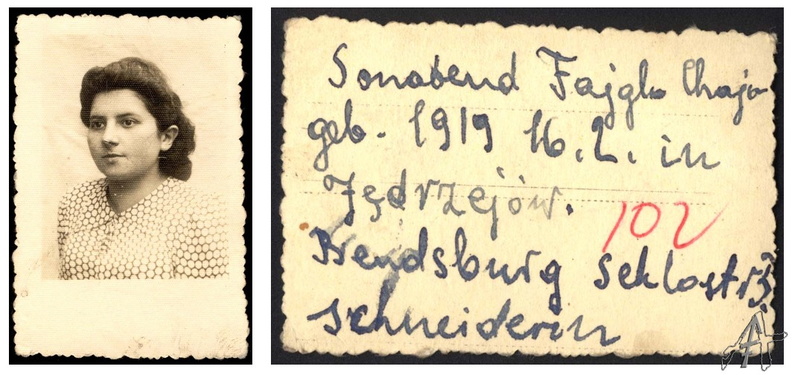 Sonabend Fajgla Chaja
geb. 1919 16.2. in
Jędrzejów.
102
Bendsburg Schlostr 3
Schneiderin